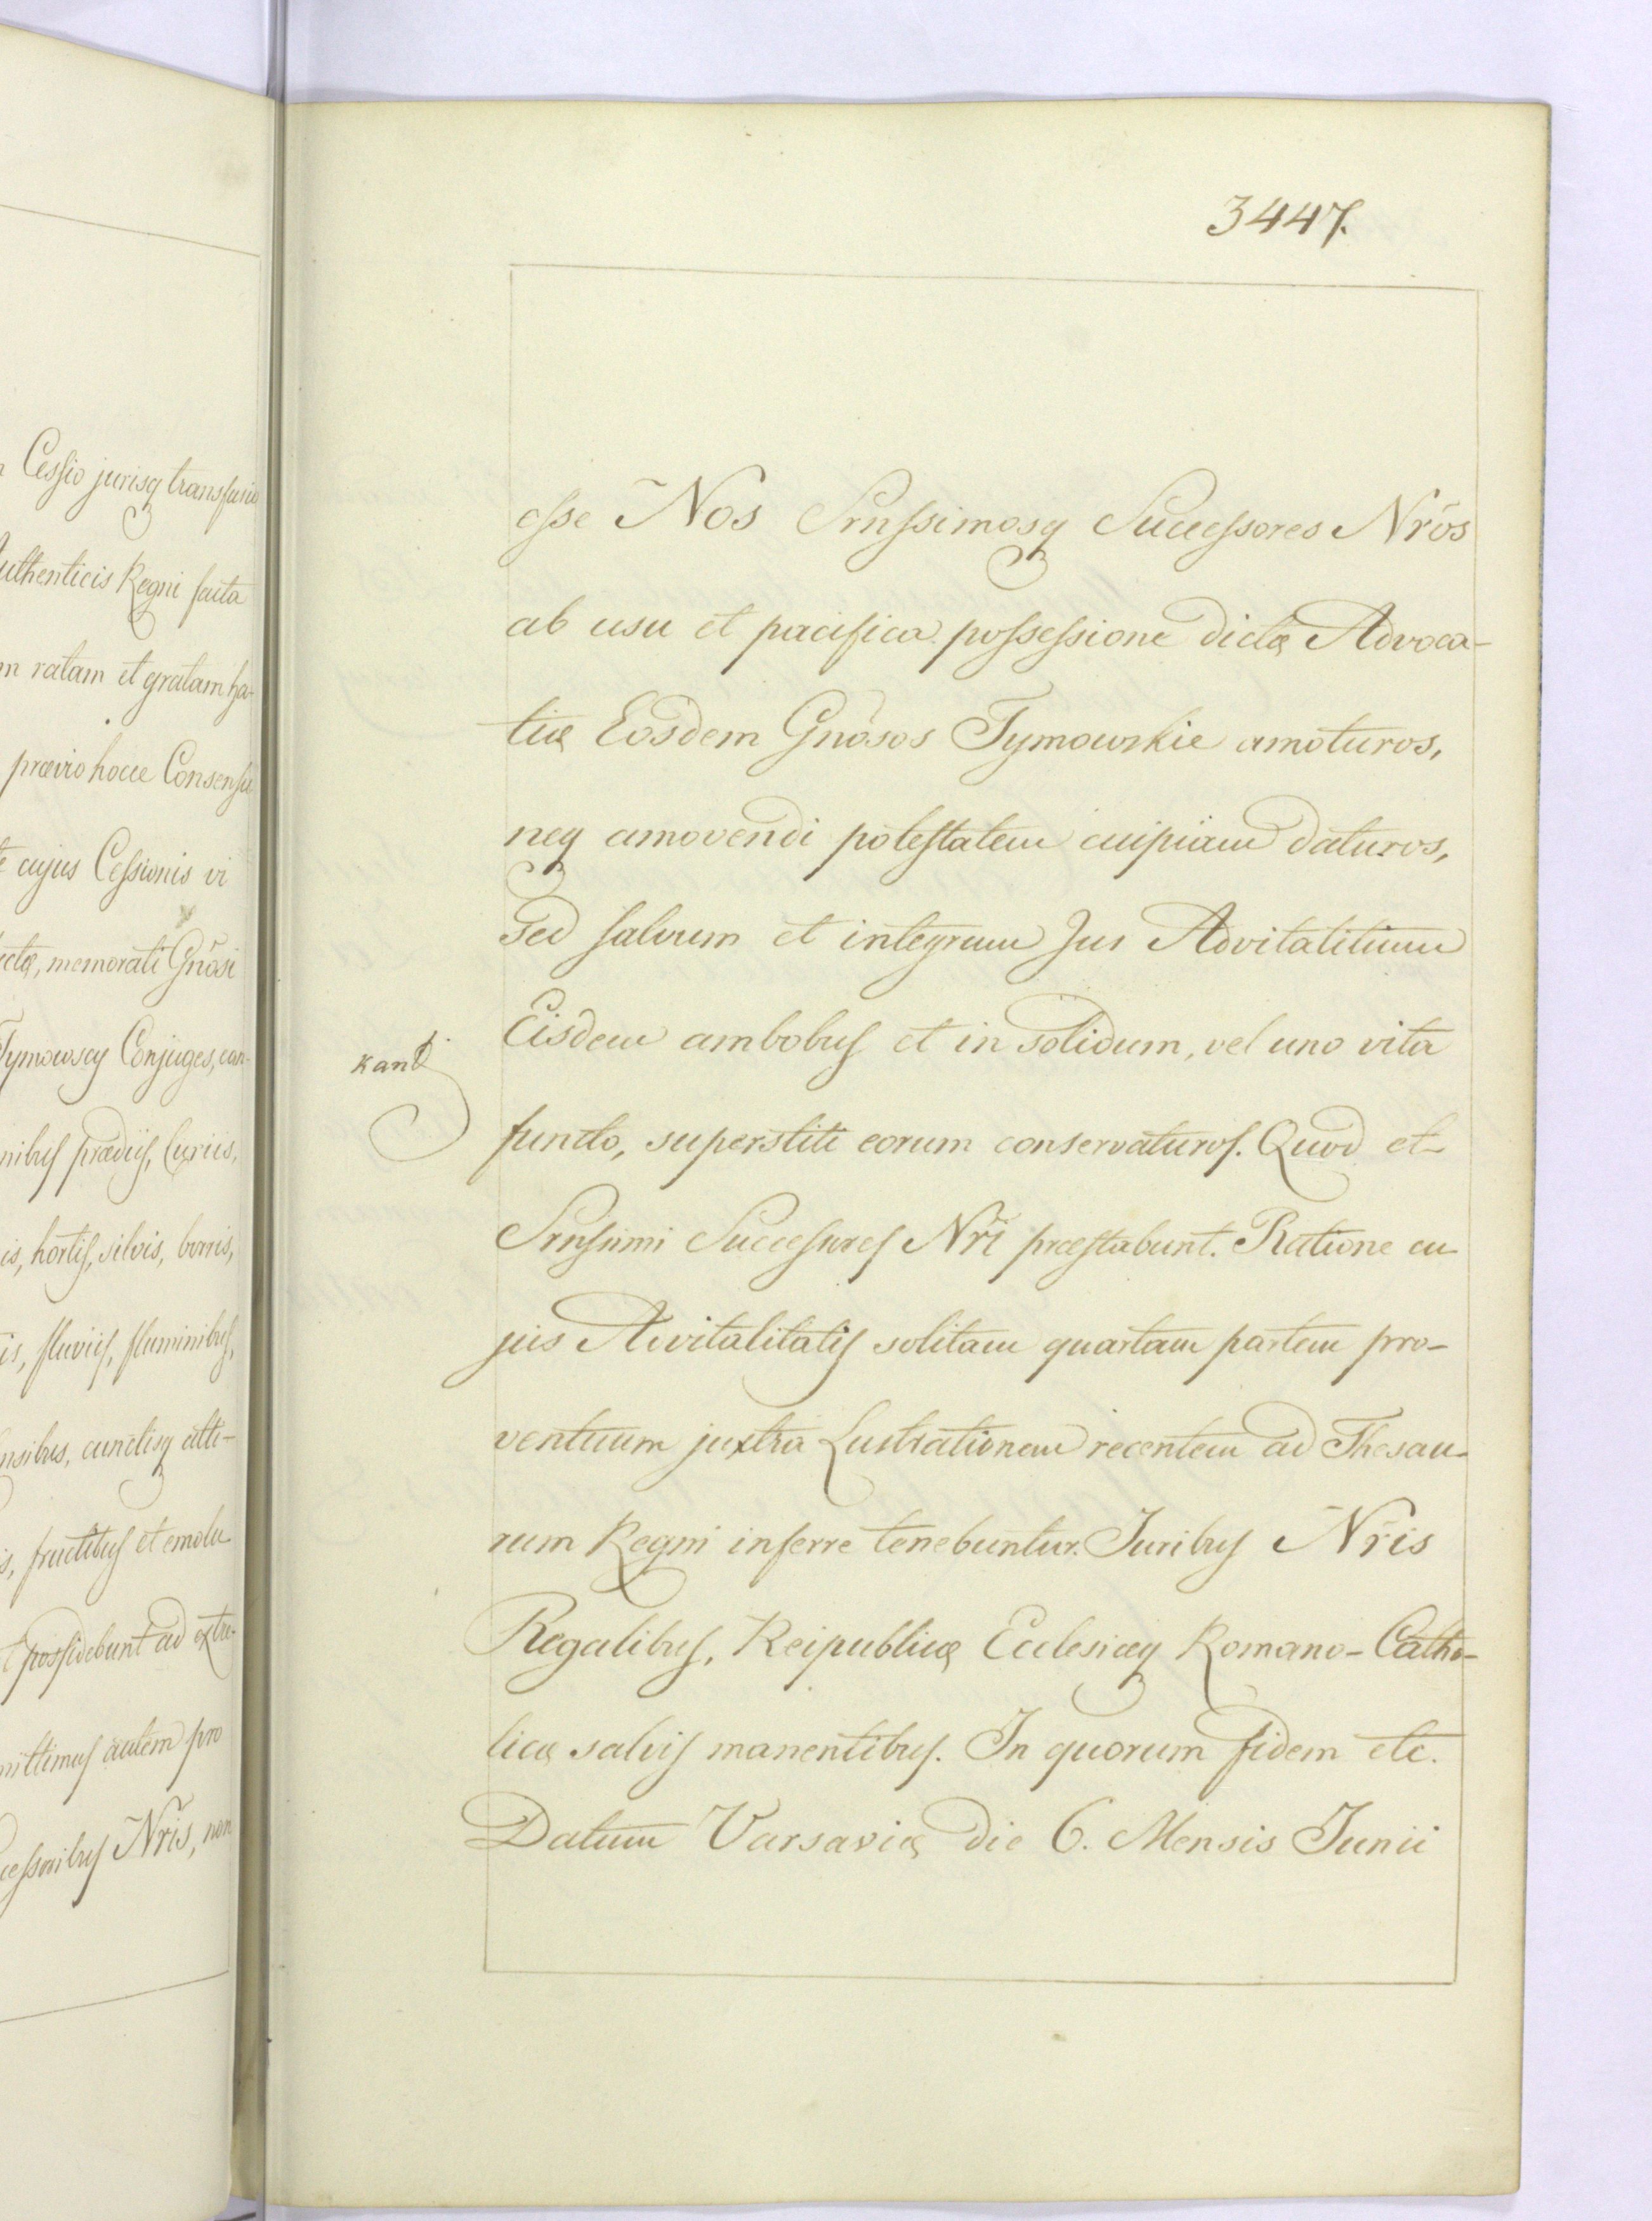 n Cessio jurisq transfusio
Authenticis Regni facta
m ratam et gratam ha-
prævio hocce Consensu
te cujus Cessionis vi
ictæ, memorati Gnosi
Tymowscy Conjuges, cum
nibus prædiis, Curiis,
is, hortis, silvis, borris,
is, fluviis, fluminibus,
ensibus, cunctisq atti-
is, fructibus et emolu
t possidebunt ad extre-
mittimus autem pro
cessoribus Nris, non
3447.
esse Nos Srnssimosq Successores Nros
ab usu et pacifica possessione dictæ Advoca-
tiæ Eosdem Gnosos Tymowskie amoturos,
neq amovendi potestatem cuipiam daturos,
Sed salvum et integrum Jus Advitalitium
Eisdem ambobus et in solidum, vel uno vita
kand
functo, superstiti eorum conservaturos. Quod et
Srnssimi Successores Nri præstabunt. Ratione cu
jus Avitalitatis solitam quartam partem pro-
ventuum juxtra Lustrationem recentem ad Thesau-
rum Regni inferre tenebuntur. Juribus Nris
Regalibus, Reipublicæ Ecclesiæq Romano-Catho-
licæ salvis manentibus. In quorum fidem etc.
Datum Varsaviæ die 6. Mensis Junii